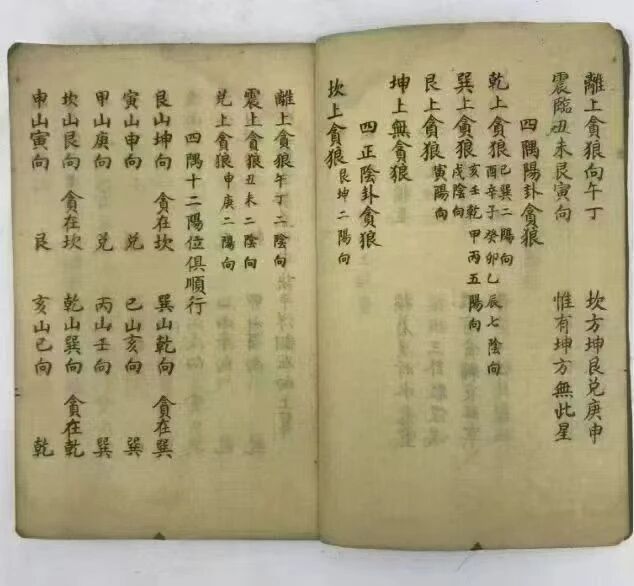 離上貪狼向午丁 坎方坤艮兑庚申
震臨丑未艮寅向 惟有坤方無此星
四隅陽卦貪狼
乾上貪狼 巳巽二陽向 酉辛子癸卯乙辰七陰向
巽上貪狼 亥壬乾甲丙五陽向 戌陰向
艮上貪狼 寅陽向
坤上無貪狼
四正陰卦貪狼
坎上貪狼 艮坤二陽向
離上貪狼午丁二陰向
震上貪狼丑未二陰向
兑上貪狼申庚二陽向
四隅十二陽位俱順行
艮山坤向 貪在坎 巽山乾向 貪在巽
寅山申向 兑 巳山亥向 巽
甲山庚向 兑 丙山壬向 巽
坎山艮向 貪在坎 乾山巽向 貪在乾
申山寅向 艮 亥山巳向 乾